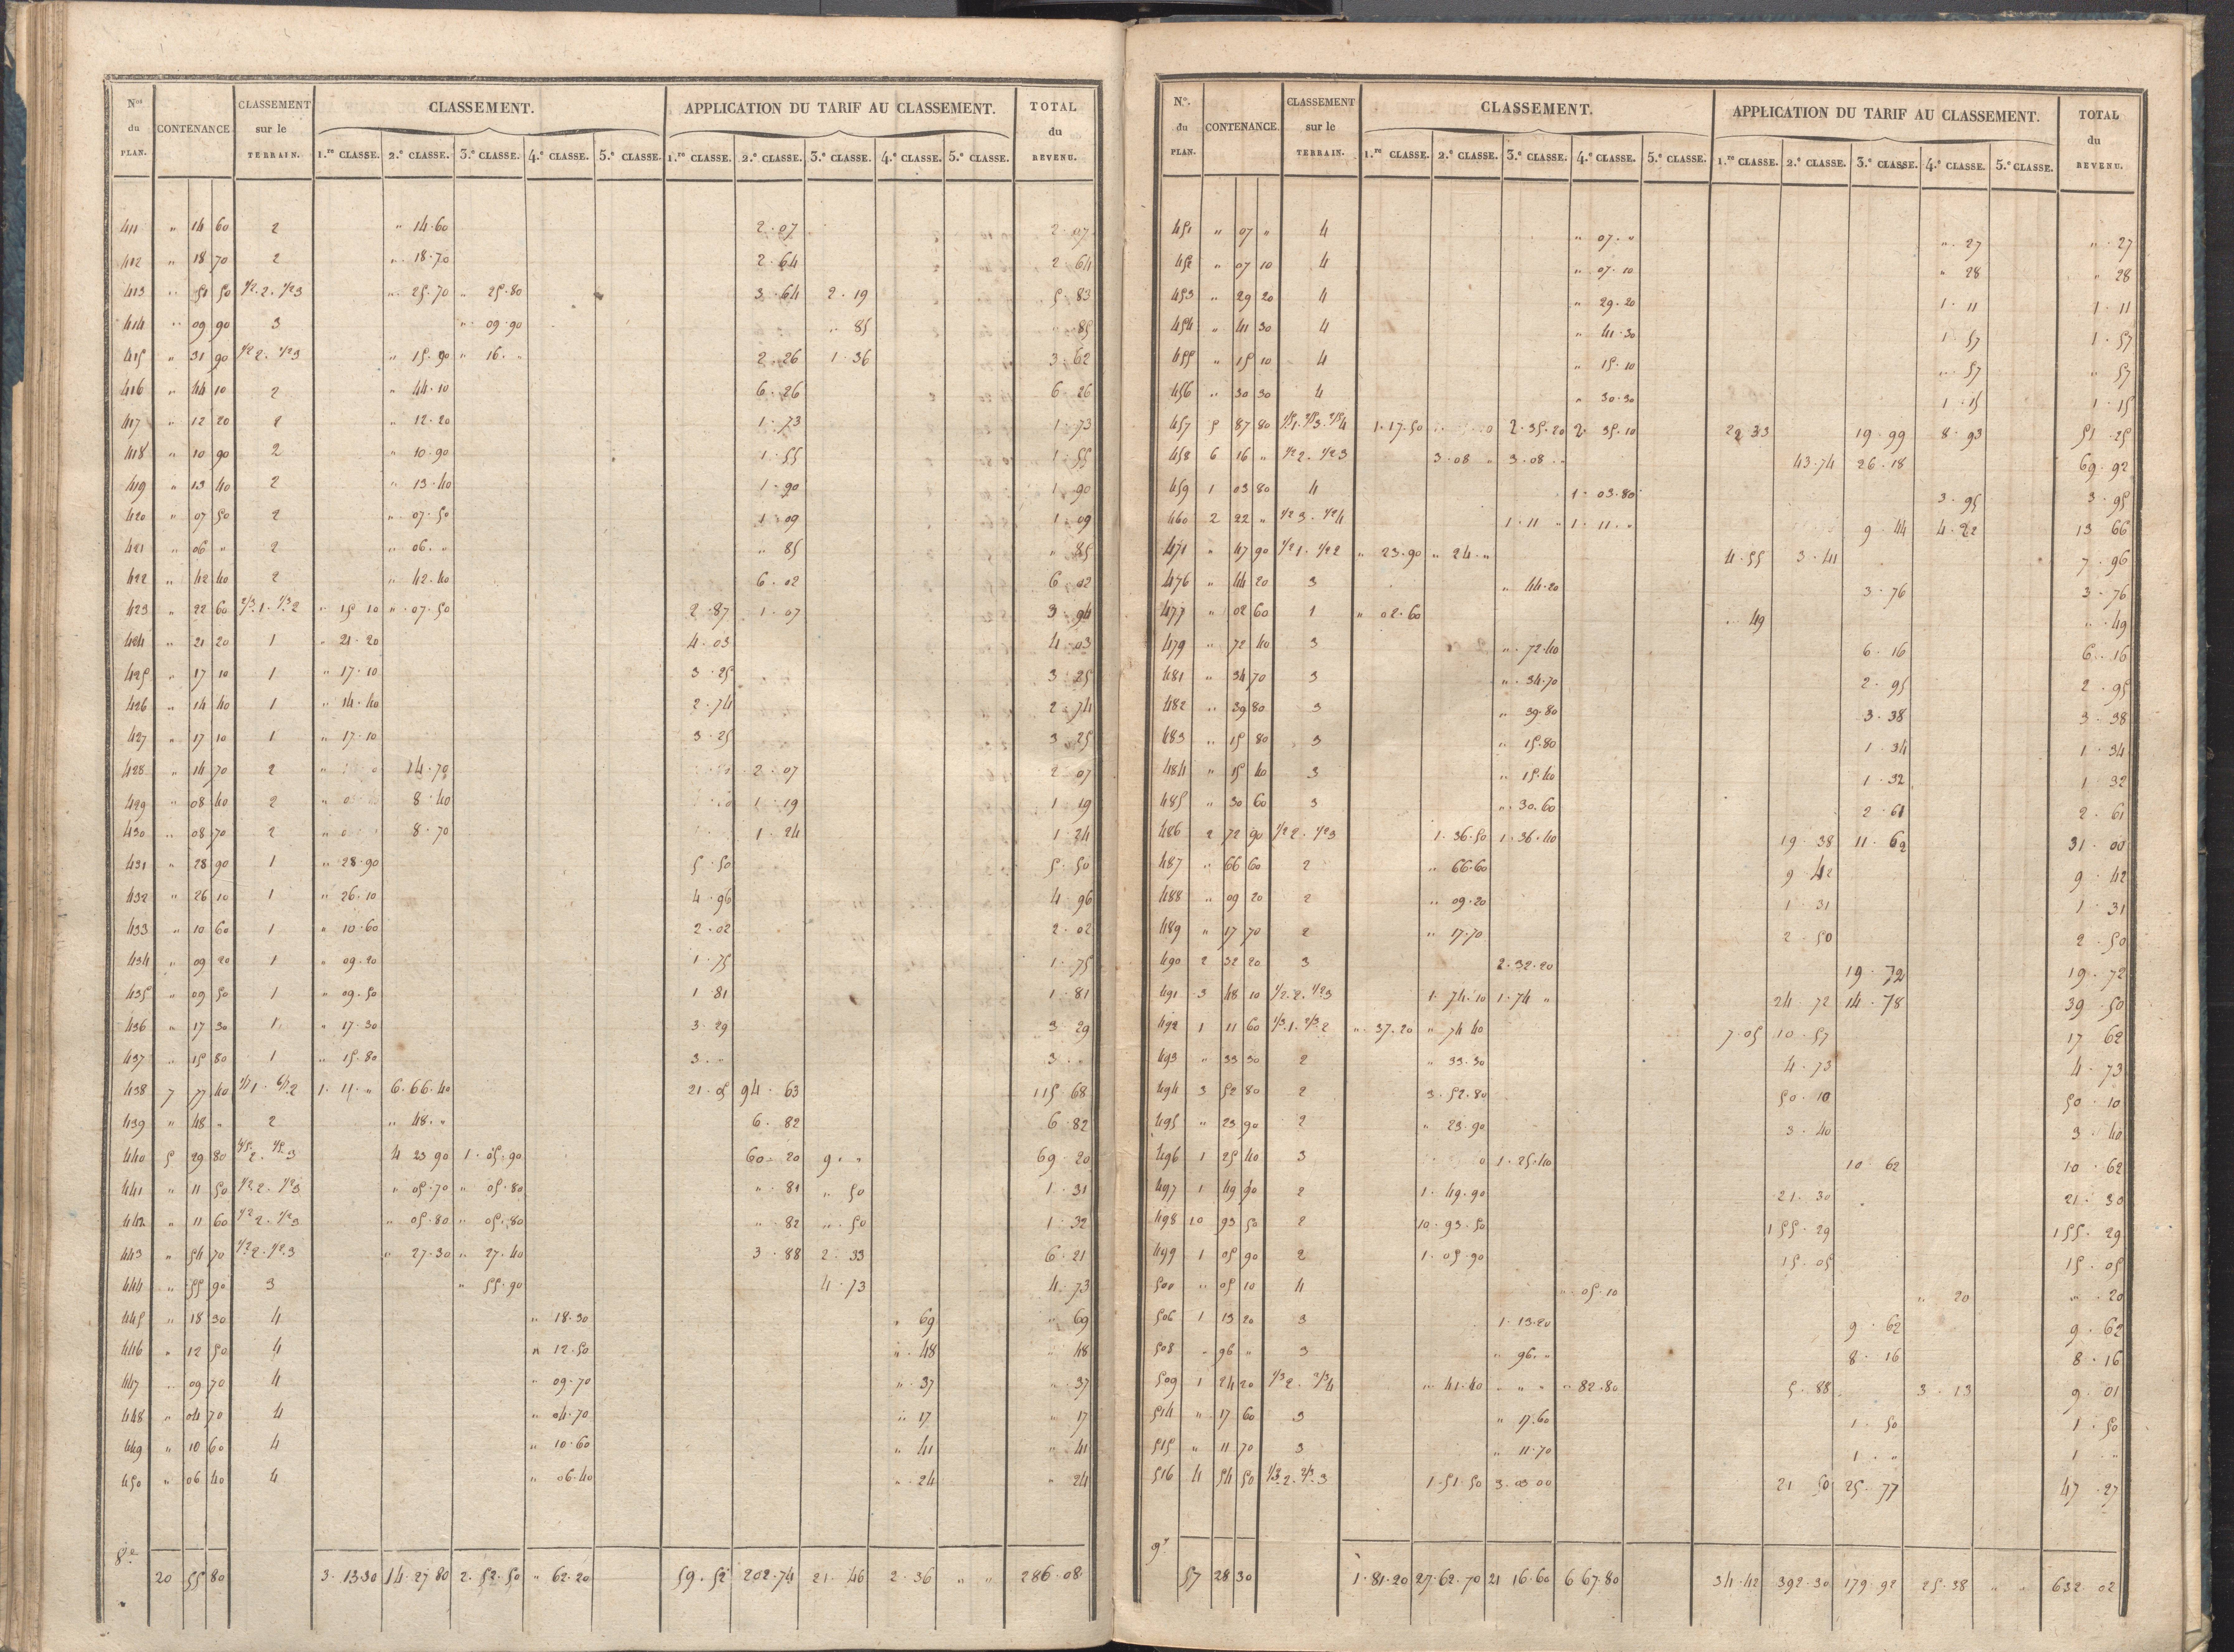 Nos du PLAN. CONTENANCE CLASSEMENT sur le TERRAIN. CLASSEMENT. APPLICATION DU TARIF AU CLASSEMENT. TOTAL du REVENU.
1.re CLASSE. 2.e CLASSE. 3.e CLASSE. 4.e CLASSE. 5.e CLASSE. 1.re CLASSE. 2.e CLASSE. 3.e CLASSE. 4.e CLASSE. 5.e CLASSE.
411 " 14 60 2 " 14.60 2.07 2.07
412 " 18 70 2 " 18.70 2.64 2.64
413 " 51 50 1/2.2. 1/2 3 " 25.70 " 25.80 3.64 2.19 5.83
414 " 09 90 3 " 09.90 " 85 " 85
415 " 31 90 1/2 2. 1/2 3 " 15.90 " 16. " 2.26 1.36 3.62
416 " 44 10 2 " 44.10 6.26 6.26
417 " 12 20 2 " 12.20 1.73 1.73
418 " 10 90 2 " 10.90 1.55 1.55
419 " 13 40 2 " 13.40 1.90 1.90
420 " 07 50 2 " 07.50 1.09 1.09
421 " 06 " 2 " 06. " " 85 " 85
422 " 42 40 2 " 42.40 6.02 6.02
423 " 22 60 2/3.1. 1/3.2 " 15 10 " 07.50 2.87 1.07 3.94
424 " 21 20 1 " 21.20 4.03 4.03
425 " 17 10 1 " 17.10 3.25 3.25
426 " 14 40 1 " 14.40 2.74 2.74
427 " 17 10 1 " 17.10 3.25 3.25
428 " 14 70 2 14.70 2.07 2.07
429 " 08 40 2 8.40 1.19 1.19
430 " 08 70 2 8.70 1.24 1.24
431 " 28 90 1 " 28.90 5.50 5.50
432 " 26 10 1 " 26.10 4.96 4.96
433 " 10 60 1 " 10.60 2.02 2.02
434 " 09 20 1 " 09.20 1.75 1.75
435 " 09 50 1 " 09.50 1.81 1.81
436 " 17 30 1 " 17.30 3.29 3.29
437 " 15 80 1 " 15.80 3. " 3. "
438 7 77 40 1/7 1. 6/7.2 1.11. " 6.66.40 21.05 94.63 115 68
439 " 48 " 2 " 48. " 6.82 6.82
440 5 29 80 4/5 2. 1/5 3 4 23 90 1.05.90 60.20 9. " 69.20
441 " 11 50 1/2.2. 1/2 3 " 05.70 " 05.80 " 81 " 50 1.31
442 " 11 60 1/2 2. 1/2 3 " 05.80 " 05.80 " 82 " 50 1.32
443 " 54 70 1/2 2. 1/2.3 " 27.30 " 27.40 3.88 2.33 6.21
444 " 55 90 3 " 55.90 4.73 4.73
445 " 18 30 4 " 18.30 " 69 " 69
446 " 12 50 4 " 12.50 " 48 " 48
447 " 09 70 4 " 09.70 " 37 " 37
448 " 04 70 4 " 04.70 " 17 " 17
449 " 10 60 4 " 10.60 " 41 " 41
450 " 06 40 4 " 06.40 " 24 " 24
8e 20 55 80 3.13 30 14.27 80 2.52.50 " 62.20 59.52 202.74 21.46 2.36 " " 286.08
No. du PLAN. CONTENANCE CLASSEMENT sur le TERRAIN. CLASSEMENT. APPLICATION DU TARIF AU CLASSEMENT. TOTAL du REVENU.
1.re CLASSE. 2.e CLASSE. 3.e CLASSE. 4.e CLASSE. 5.e CLASSE. 1.re CLASSE. 2.e CLASSE. 3.e CLASSE. 4.e CLASSE. 5.e CLASSE.
451 " 07 " 4 " 07. " " 27 " 27
452 " 07 10 4 " 07.10 " 28 " 28
453 " 29 20 4 " 29.20 1.11 1.11
454 " 41 30 4 " 41.30 1.57 1.57
455 " 15 10 4 " 15.10 " 57 " 57
456 " 30 30 4 " 30.30 1.15 1.15
457 5 87 80 1/5 1. 2/5 3. 2/5 4 1.17.50 2.35.20 2.35.10 22.33 19.99 8.93 51.25
458 6 16 " 1/2 2. 1/2 3 3.08 " 3.08. " 43.74 26.18 69.92
459 1 03 80 4 1.03.80 3.95 3.95
460 2 22 " 1/2 3. 1/2 4 1.11 " 1.11. " 9.44 4.22 13 66
471 " 47 90 1/2 1. 1/2 2 " 23.90 " 24. " 4.55 3.41 7.96
476 " 44 20 3 " 44.20 3.76 3.76
477 " 02 60 1 " 02.60 " 49 " 49
479 " 72 40 3 " 72.40 6.16 6.16
481 " 34 70 3 " 34.70 2.95 2.95
482 " 39 80 3 " 39.80 3.38 3.38
483 " 15 80 3 " 15.80 1.34 1.34
484 " 15 40 3 " 15.40 1.32 1 32
485 " 30 60 3 " 30.60 2.61 2.61
486 2 72 90 1/2 2. 1/2 3 1.36.50 1.36.40 19.38 11.62 31.00
487 " 66 60 2 " 66.60 9.42 9.42
488 " 09 20 2 " 09.20 1.31 1.31
489 " 17 70 2 " 17.70 2.50 2.50
490 2 32 20 3 2.32.20 19.72 19.72
491 3 48 10 1/2.2. 1/2 3 1.74.10 1.74 " 24 72 14.78 39.50
492 1 11 60 1/3.1. 2/3.2 " 37.20 " 74 40 7.05 10.57 17 62
493 " 33 30 2 " 33.30 4.73 4.73
494 3 52 80 2 3.52.80 50.10 50.10
495 " 23 90 2 " 23.90 3.40 3.40
496 1 25 40 3 1.25.40 10 62 10.62
497 1 49 90 2 1.49.90 21.30 21.30
498 10 93 50 2 10.93.50 155.29 155.29
499 1 05 90 2 1.05.90 15.05 15.05
500 " 05 10 4 " 05.10 " 20 " 20
506 1 13 20 3 1.13.20 9.62 9.62
508 " 96 " 3 " 96. " 8.16 8.16
509 1 24 20 1/3 2. 2/3 4 " 41.40 " " " " 82.80 5.88 3.13 9.01
514 " 17 60 3 " 17.60 1.50 1.50
515 " 11 70 3 " 11.70 1. " 1. "
516 4 54 50 1/3.2. 2/3.3 1.51.50 3.03 00 21 50 25.77 47.27
9e 57 28 30 1.81.20 27.62.70 21 16.60 6 67.80 34.42 392.30 179.92 25.38 " " 632 02